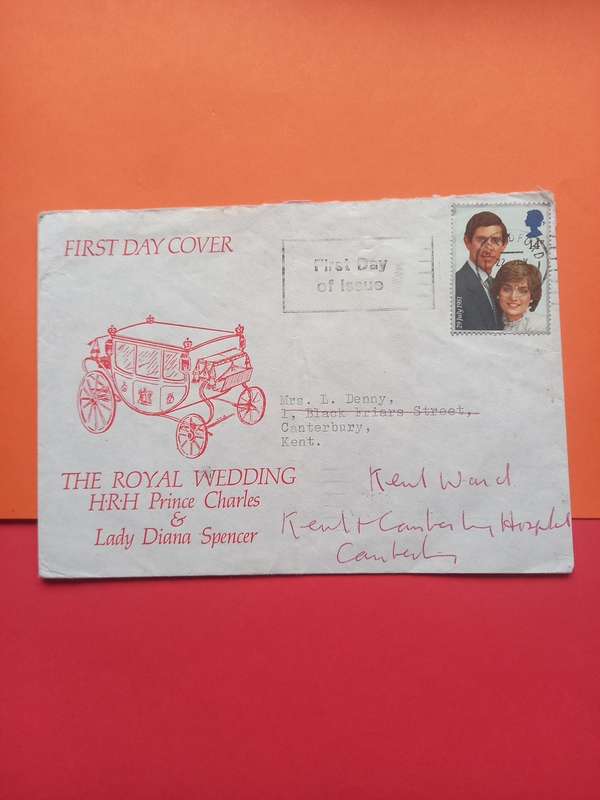 FIRST DAY COVER
First Day
of Issue
14
29 July 1981
Mrs. L. Denny,
1, Black Friars Street,
Canterbury,
Kent.
Kent Ward
Kent & Canterbury Hospital
Canterbury
THE ROYAL WEDDING
H·R·H Prince Charles
&
Lady Diana Spencer